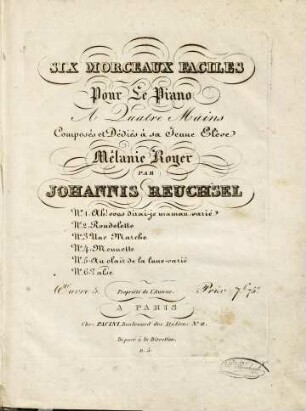 SIX MORCEAUX FACILES
Pour Le Piano
A Quatre Mains
Composés et Dédiés à sa Jeune Elève
Mélanie Royer
PAR
JOHANNIS REUCHSEL
Nº 1. Ah! vous dirai-je maman varié
Nº 2. Rondolette
Nº 3. Une Marche
Nº 4.
Nº 5. Au clair de la lune varié
Nº 6. Valse
Œuvre 5. Propriété de l'Auteur. Prix 7f 75c
A PARIS
Chez PACINI, Boulevard des Italiens Nº 11.
Déposé à la Direction.